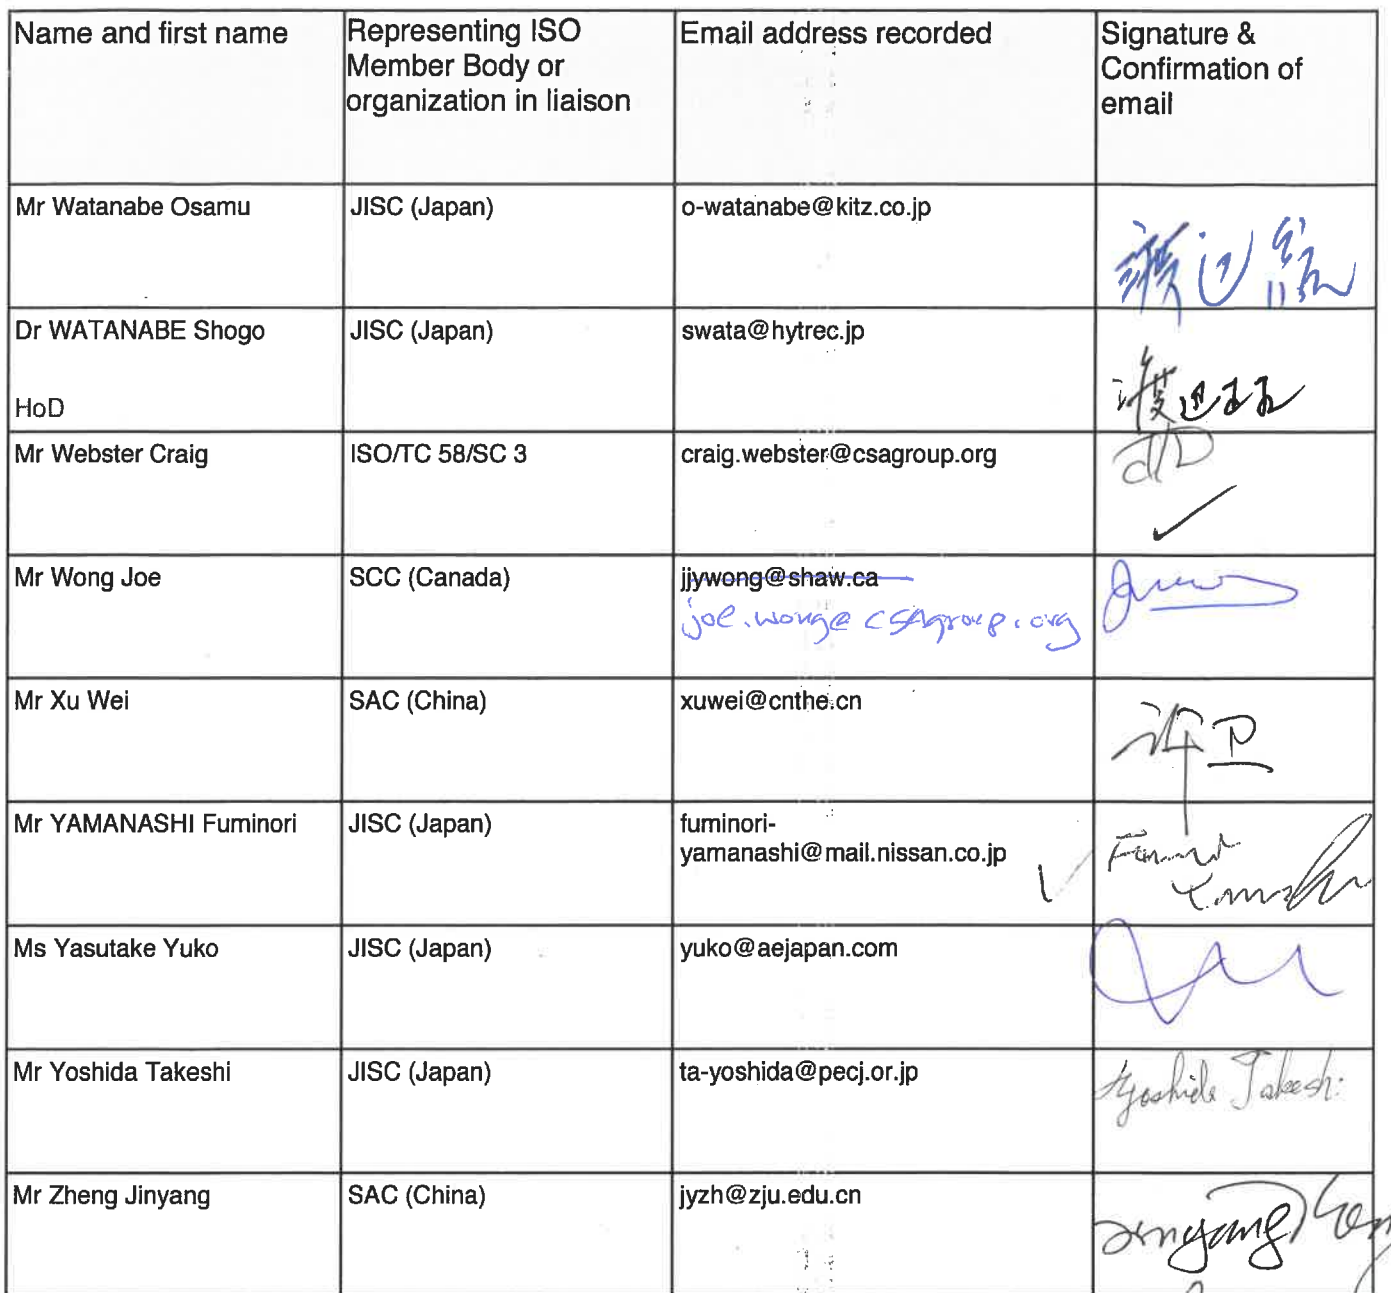 Name and first name
Representing ISO
Member Body or
organization in liaison
Email address recorded
Signature &
Confirmation of
email
Mr Watanabe Osamu
JISC (Japan)
o-watanabe@kitz.co.jp
Dr WATANABE Shogo
HoD
JISC (Japan)
swata@hytrec.jp
Mr Webster Craig
ISO/TC 58/SC 3
craig.webster@csagroup.org
Mr Wong Joe
SCC (Canada)
jjywong@shaw.ca
joe.wong@csagroup.org
Mr Xu Wei
SAC (China)
xuwei@cnthe.cn
许卫
Mr YAMANASHI Fuminori
JISC (Japan)
fuminori-
yamanashi@mail.nissan.co.jp
Ms Yasutake Yuko
JISC (Japan)
yuko@aejapan.com
Mr Yoshida Takeshi
JISC (Japan)
ta-yoshida@pecj.or.jp
Yoshida Takeshi
Mr Zheng Jinyang
SAC (China)
jyzh@zju.edu.cn